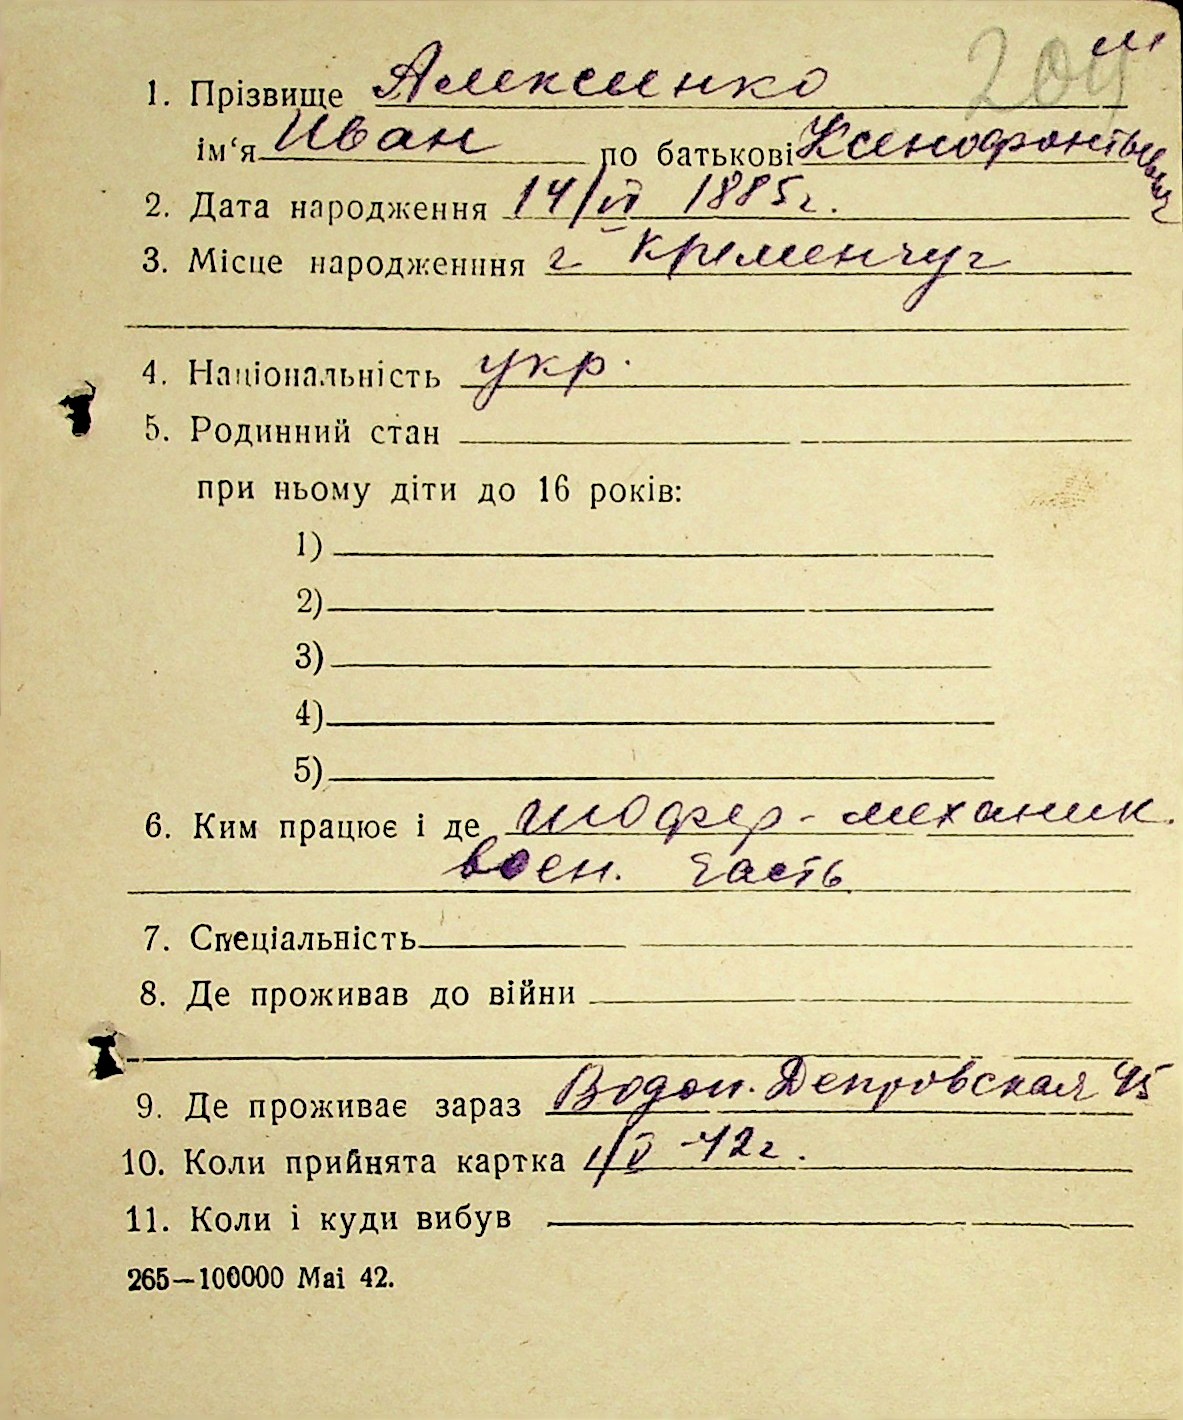 204 м
1. Прізвище Алексеенко
ім‘я Иван по батькові Ксенофонтьевич
2. Дата народження 14/VI 1885г.
3. Місце народженння г Кременчуг
4. Національність укр.
5. Родинний стан
при ньому діти до 16 років:
1)
2)
3)
4)
5)
6. Ким працює і де шофер-механик.
воен. часть
7. Спеціальність
8. Де проживав до війни
9. Де проживає зараз Водоп. Депровская 45
10. Коли прийнята картка 1/V -42г.
11. Коли і куди вибув
265—100000 Mai 42.